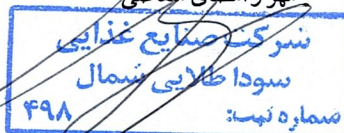 شرکت صنایع غذایی
سودا طلایی شمال
شماره ثبت: ۴۹۸